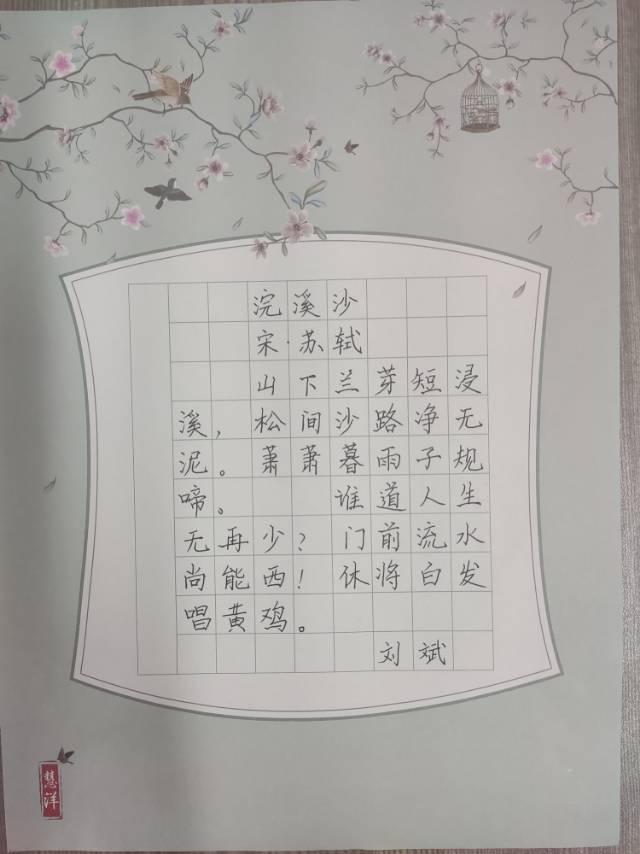 浣溪沙
宋·苏轼
山下兰芽短浸
溪，松间沙路净无
泥。萧萧暮雨子规
啼。 谁道人生
无再少？门前流水
尚能西！休将白发
唱黄鸡。
刘斌
慧洋